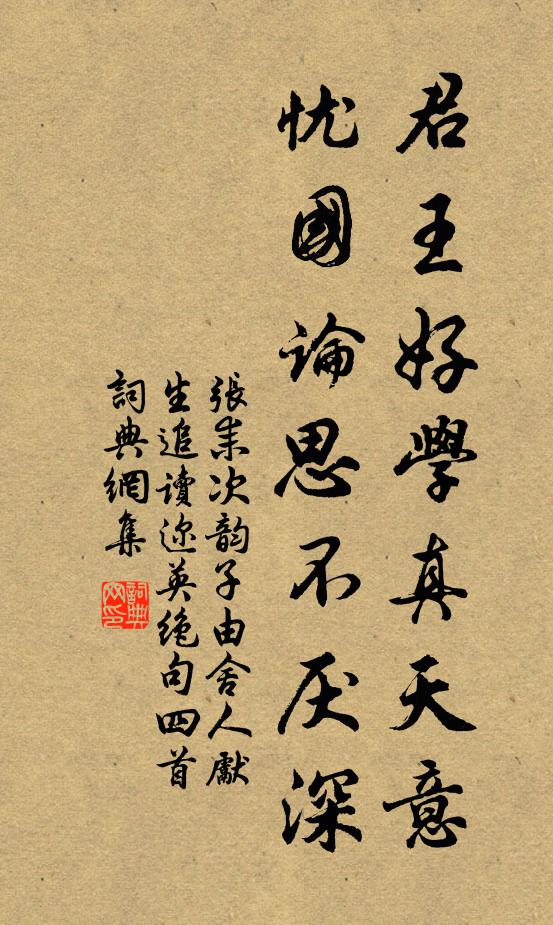 君王好學真天意
忧國論思不厌深
張耒次韵子由舍人獻
生追讀迩英絶句四首
詞典網集
詞典
网印